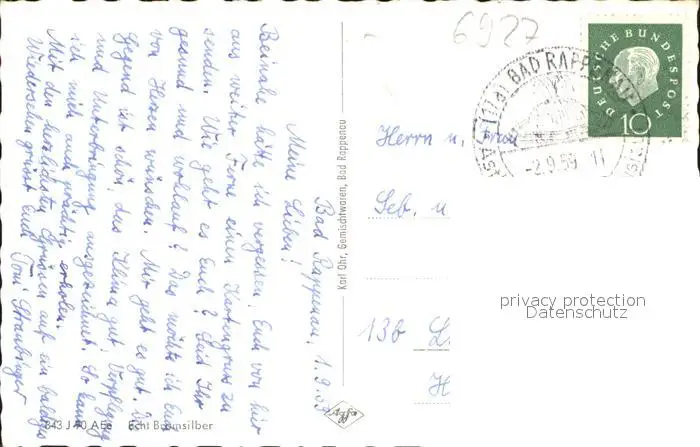 Bad Rappenau, 1.9.59
Meine Lieben!
Beinahe hätte ich vergessen Euch von hier
aus weiter Ferne einen Kartengruss zu
senden. Wie geht es Euch? Seid Ihr
gesund und wohlauf? Das möchte ich Euch
von Herzen wünschen. Mir geht es gut. Die
Gegend ist schön, das Klima gut, Verpflegung
und Unterbringung ausgezeichnet. So kann
ich mich auch prächtig erholen.
Mit den herzlichsten Grüssen auf ein baldiges
Wiedersehen grüsst Euch Toni Straubinger
843 J 40 AEe Echt Bromsilber
Karl Ohr, Gemischtwaren, Bad Rappenau
6927
BAD RAPPENAU
-2.9.59 11
DEUTSCHE BUNDESPOST
10
Herrn u. Frau
Seb. u
13b L
H
privacy protection
Datenschutz